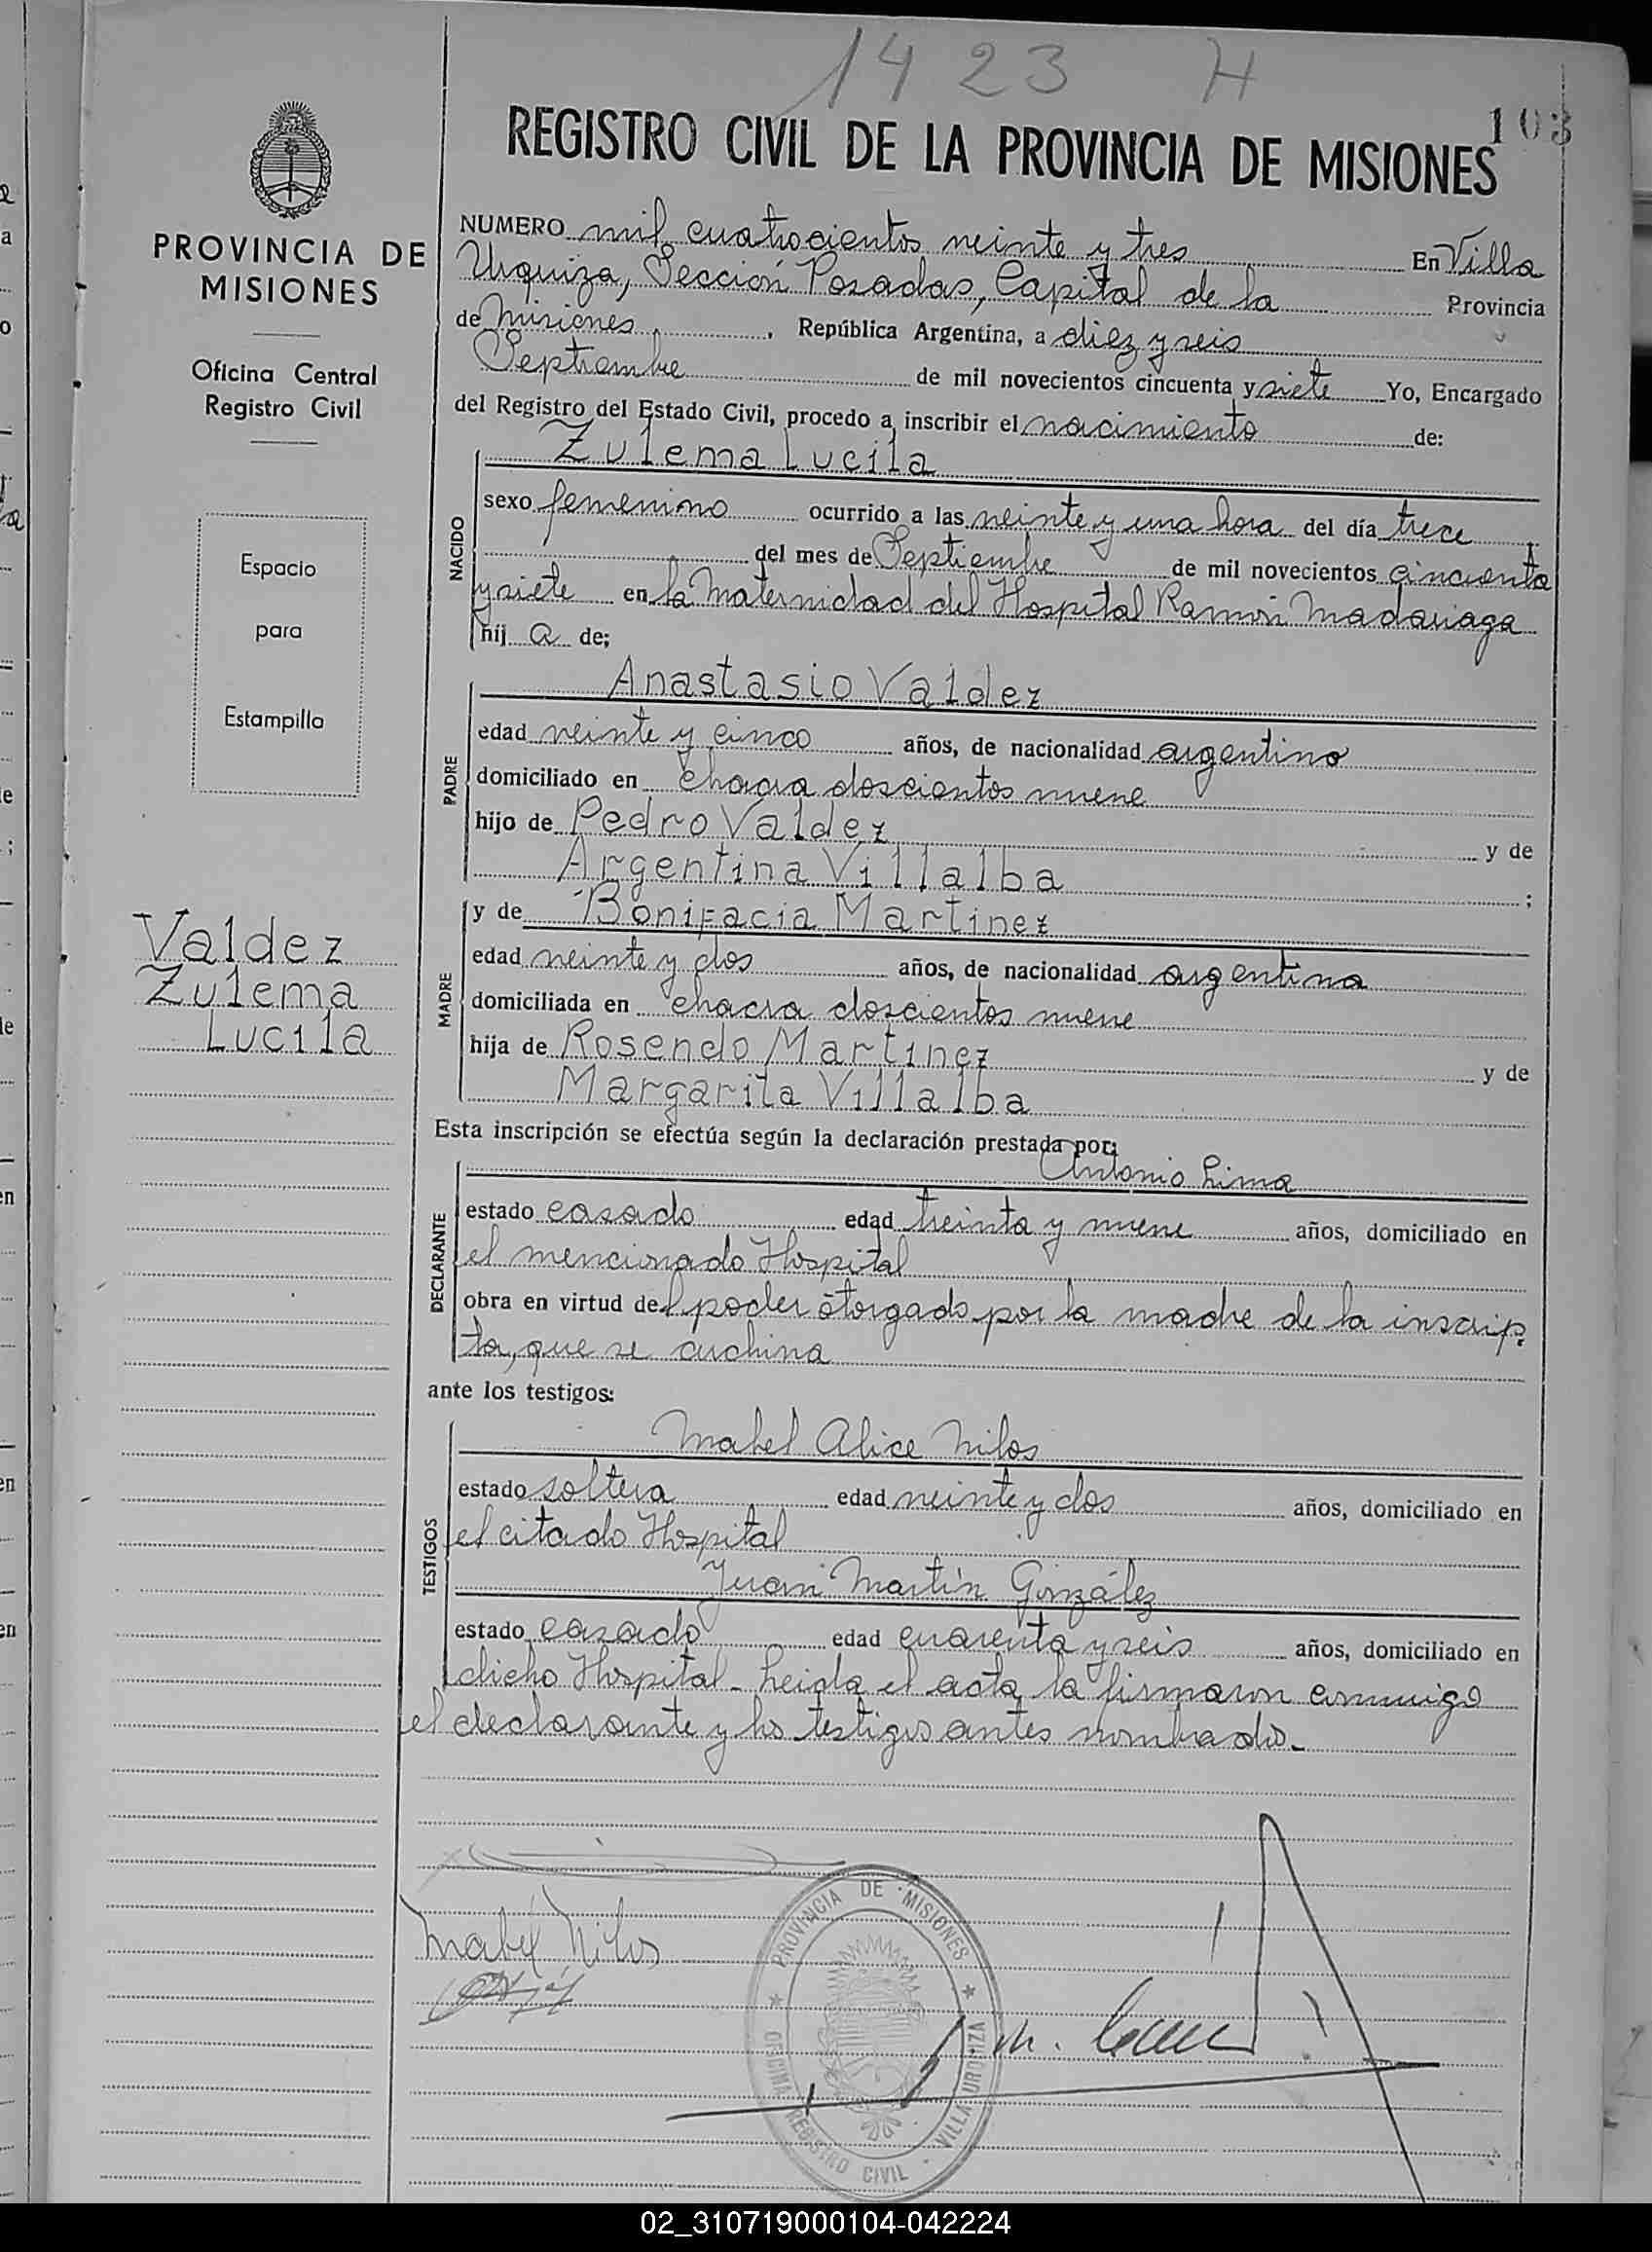 1423 H
103
REGISTRO CIVIL DE LA PROVINCIA DE MISIONES
PROVINCIA DE
MISIONES
Oficina Central
Registro Civil
Espacio
para
Estampilla
Valdez
Zulema
Lucila
NUMERO mil cuatrocientos veinte y tres En Villa
Urquiza, Sección Posadas, Capital de la Provincia
de Misiones, República Argentina, a diez y seis
Septiembre de mil novecientos cincuenta y siete Yo, Encargado
del Registro del Estado Civil, procedo a inscribir el nacimiento de:
Zulema Lucila
NACIDO
sexo femenino ocurrido a las veinte y una hora del día trece
del mes de Septiembre de mil novecientos cincuenta
y siete en la Maternidad del Hospital Ramón Madariaga
hij a de;
Anastasio Valdez
PADRE
edad veinte y cinco años, de nacionalidad argentino
domiciliado en chacra doscientos nueve
hijo de Pedro Valdez y de
Argentina Villalba ;
y de Bonifacia Martinez
MADRE
edad veinte y dos años, de nacionalidad argentina
domiciliada en chacra doscientos nueve
hija de Rosendo Martinez y de
Margarita Villalba
Esta inscripción se efectúa según la declaración prestada por:
Antonio Lima
DECLARANTE
estado casado edad treinta y nueve años, domiciliado en
el mencionado Hospital
obra en virtud del poder otorgado por la madre de la inscrip
ta, que se archiva
ante los testigos:
Mabel Alice Nilos
TESTIGOS
estado soltera edad veinte y dos años, domiciliado en
el citado Hospital
Juan Martín González
estado casado edad cuarenta y seis años, domiciliado en
dicho Hospital - Leida el acta, la firmaron conmigo
el declarante y los testigos antes nombrados.-
Mabel Nilos
PROVINCIA DE MISIONES
OFICINA REGISTRO CIVIL - VILLA URQUIZA
02_310719000104-042224